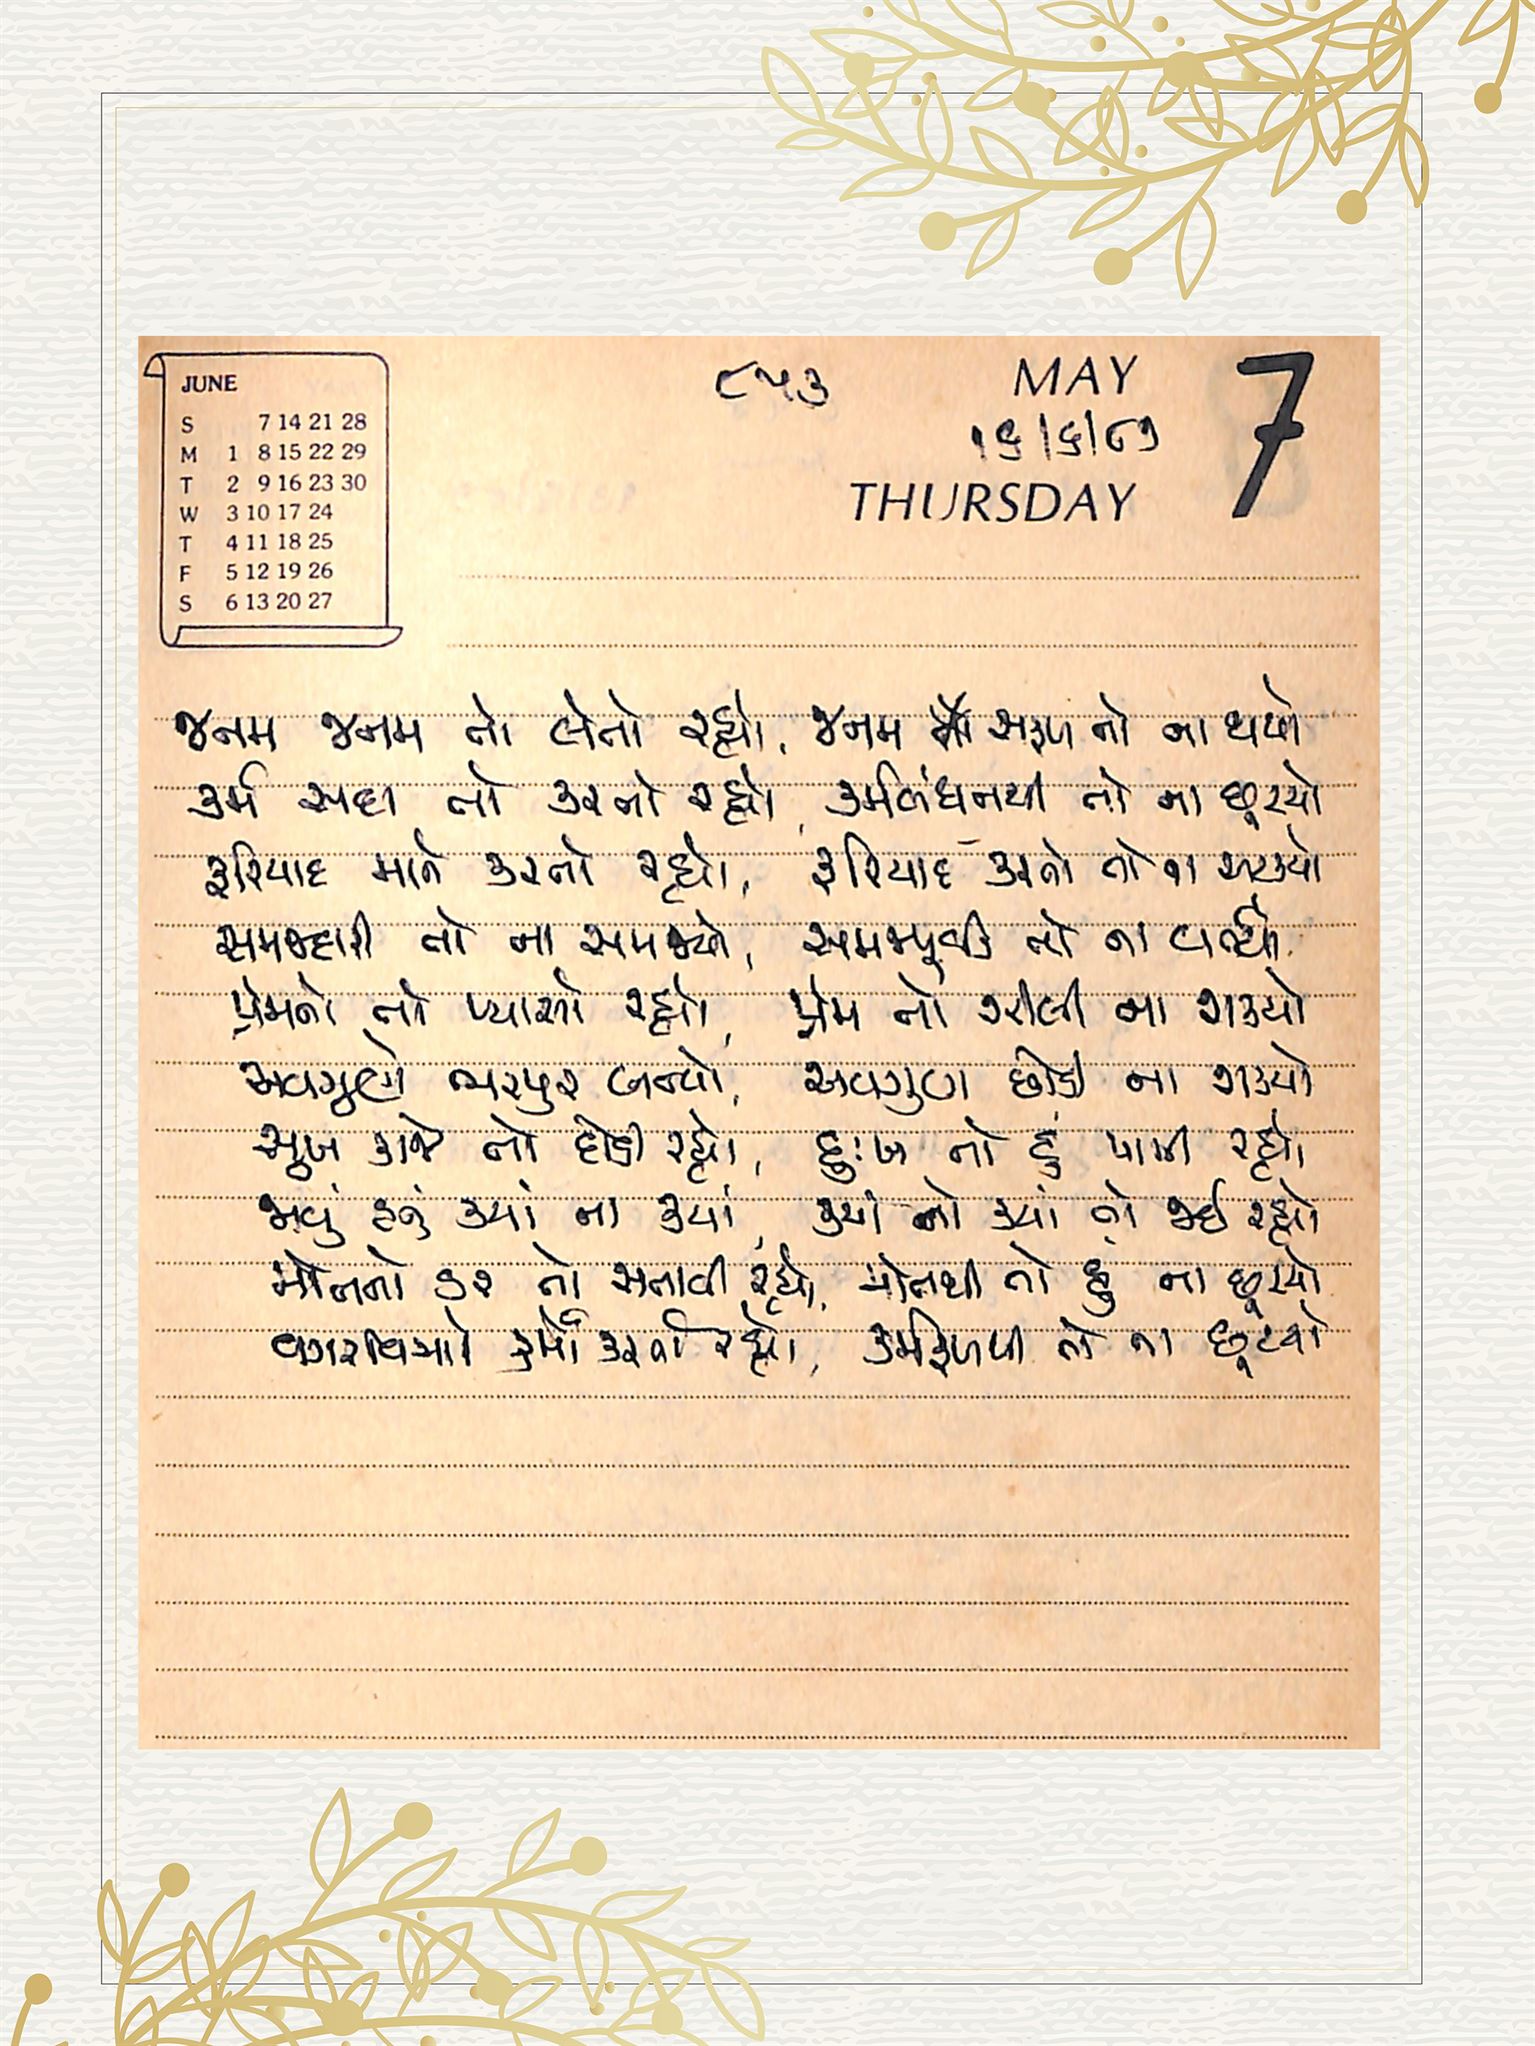 JUNE
S 7 14 21 28
M 1 8 15 22 29
T 2 9 16 23 30
W 3 10 17 24
T 4 11 18 25
F 5 12 19 26
S 6 13 20 27
૮૫૩
MAY 7
૧૬/૬/૮૭
THURSDAY
જનમ જનમ તો લેતો રહ્યો, જનમ સફળ તો ના થયો
કર્મ સદા તો કરતો રહ્યો, કર્મબંધનથી તો ના છૂટયો
ફરિયાદ માને કરતો રહ્યો, ફરિયાદ કરતો તો ના અટકયો
સમજદારી તો ના સમજ્યો, સમજપૂર્વક તો ના વર્ત્યો
પ્રેમનો તો પ્યાસો રહ્યો, પ્રેમ તો ઝીલી ના શકયો
અવગુણો ભરપુર બન્યો, અવગુણ છોડી ના શકયો
સુખ કાજે તો દોડી રહ્યો, દુઃખ તો હું પામી રહ્યો
જાવું હતું કયાં ના કયાં, કયાં નો કયાં તો જઈ રહ્યો
મોતનો ડર તો સતાવી રહ્યો, મોતથી તો હું ના છૂટયો
કર્મો કરતો રહ્યો, કર્મફળથી તો ના છૂટયો